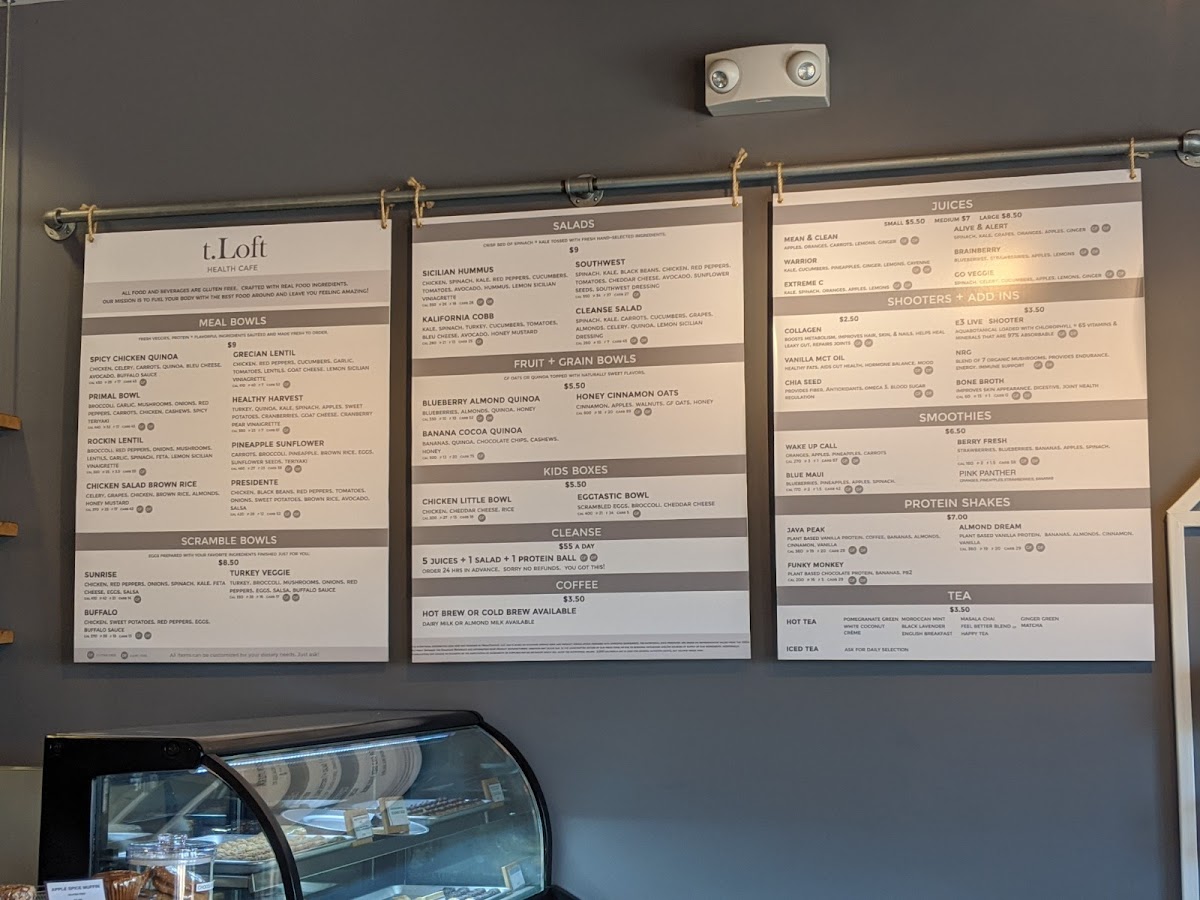 t.Loft
HEALTH CAFE
ALL FOOD AND BEVERAGES ARE GLUTEN FREE. CRAFTED WITH REAL FOOD INGREDIENTS.
OUR MISSION IS TO FUEL YOUR BODY WITH THE BEST FOOD AROUND AND LEAVE YOU FEELING AMAZING!
MEAL BOWLS
FRESH VEGGIES, PROTEIN + FLAVORFUL INGREDIENTS SAUTEED AND MADE FRESH TO ORDER.
$9
SPICY CHICKEN QUINOA
CHICKEN, CELERY, CARROTS, QUINOA, BLEU CHEESE,
AVOCADO, BUFFALO SAUCE
PRIMAL BOWL
BROCCOLI, GARLIC, MUSHROOMS, ONIONS, RED
PEPPERS, CARROTS, CHICKEN, CASHEWS, SPICY
TERIYAKI
ROCKIN LENTIL
BROCCOLI, RED PEPPERS, ONIONS, MUSHROOMS,
LENTILS, GARLIC, SPINACH, FETA, LEMON SICILIAN
VINAIGRETTE
CHICKEN SALAD BROWN RICE
CELERY, GRAPES, CHICKEN, BROWN RICE, ALMONDS,
HONEY MUSTARD
GRECIAN LENTIL
CHICKEN, RED PEPPERS, CUCUMBERS, GARLIC,
TOMATOES, LENTILS, GOAT CHEESE, LEMON SICILIAN
VINAIGRETTE
HEALTHY HARVEST
TURKEY, QUINOA, KALE, SPINACH, APPLES, SWEET
POTATOES, CRANBERRIES, GOAT CHEESE, CRANBERRY
PEAR VINAIGRETTE
PINEAPPLE SUNFLOWER
CARROTS, BROCCOLI, PINEAPPLE, BROWN RICE, EGGS,
SUNFLOWER SEEDS, TERIYAKI
PRESIDENTE
CHICKEN, BLACK BEANS, RED PEPPERS, TOMATOES,
ONIONS, SWEET POTATOES, BROWN RICE, AVOCADO,
SALSA
SCRAMBLE BOWLS
EGGS PREPARED WITH YOUR FAVORITE INGREDIENTS FINISHED JUST FOR YOU.
$8.50
SUNRISE
CHICKEN, RED PEPPERS, ONIONS, SPINACH, KALE, FETA
CHEESE, EGGS, SALSA
BUFFALO
CHICKEN, SWEET POTATOES, RED PEPPERS, EGGS,
BUFFALO SAUCE
TURKEY VEGGIE
TURKEY, BROCCOLI, MUSHROOMS, ONIONS, RED
PEPPERS, EGGS, SALSA, BUFFALO SAUCE
All items can be customized for your dietary needs. Just ask!
SALADS
CRISP BED OF SPINACH + KALE TOSSED WITH FRESH HAND-SELECTED INGREDIENTS.
$9
SICILIAN HUMMUS
CHICKEN, SPINACH, KALE, RED PEPPERS, CUCUMBERS,
TOMATOES, AVOCADO, HUMMUS, LEMON SICILIAN
VINAIGRETTE
KALIFORNIA COBB
KALE, SPINACH, TURKEY, CUCUMBERS, TOMATOES,
BLEU CHEESE, AVOCADO, HONEY MUSTARD
SOUTHWEST
SPINACH, KALE, BLACK BEANS, CHICKEN, RED PEPPERS,
TOMATOES, CHEDDAR CHEESE, AVOCADO, SUNFLOWER
SEEDS, SOUTHWEST DRESSING
CLEANSE SALAD
SPINACH, KALE, CARROTS, CUCUMBERS, GRAPES,
ALMONDS, CELERY, QUINOA, LEMON SICILIAN
DRESSING
FRUIT + GRAIN BOWLS
OF OATS OR QUINOA TOPPED WITH NATURALLY SWEET FLAVORS.
$5.50
BLUEBERRY ALMOND QUINOA
BLUEBERRIES, ALMONDS, QUINOA, HONEY
BANANA COCOA QUINOA
BANANAS, QUINOA, CHOCOLATE CHIPS, CASHEWS,
HONEY
HONEY CINNAMON OATS
CINNAMON, APPLES, WALNUTS, GF OATS, HONEY
KIDS BOXES
$5.50
CHICKEN LITTLE BOWL
CHICKEN, CHEDDAR CHEESE, RICE
EGGTASTIC BOWL
SCRAMBLED EGGS, BROCCOLI, CHEDDAR CHEESE
CLEANSE
$55 A DAY
5 JUICES + 1 SALAD + 1 PROTEIN BALL
ORDER 24 HRS IN ADVANCE. SORRY NO REFUNDS. YOU GOT THIS!
COFFEE
$3.50
HOT BREW OR COLD BREW AVAILABLE
DAIRY MILK OR ALMOND MILK AVAILABLE
JUICES
SMALL $5.50 MEDIUM $7 LARGE $8.50
MEAN & CLEAN
APPLES, ORANGES, CARROTS, LEMONS, GINGER
WARRIOR
KALE, CUCUMBERS, PINEAPPLES, GINGER, LEMONS, CAYENNE
EXTREME C
KALE, SPINACH, ORANGES, APPLES, LEMONS
ALIVE & ALERT
SPINACH, KALE, GRAPES, ORANGES, APPLES, GINGER
BRAINBERRY
BLUEBERRIES, STRAWBERRIES, APPLES, LEMONS
GO VEGGIE
SPINACH, CELERY, CUCUMBERS, APPLES, LEMONS, GINGER
SHOOTERS + ADD INS
$2.50
COLLAGEN
BOOSTS METABOLISM, IMPROVES HAIR, SKIN, & NAILS, HELPS HEAL
LEAKY GUT, REPAIRS JOINTS
VANILLA MCT OIL
HEALTHY FATS, AIDS GUT HEALTH, HORMONE BALANCE, MOOD
CHIA SEED
PROVIDES FIBER, ANTIOXIDANTS, OMEGA 3, BLOOD SUGAR
REGULATION
$3.50
E3 LIVE - SHOOTER
AQUABOTANICAL LOADED WITH CHLOROPHYLL + 65 VITAMINS &
MINERALS THAT ARE 97% ABSORBABLE
NRG
BLEND OF 7 ORGANIC MUSHROOMS, PROVIDES ENDURANCE,
ENERGY, IMMUNE SUPPORT
BONE BROTH
IMPROVES SKIN APPEARANCE, DIGESTIVE, JOINT HEALTH
SMOOTHIES
$6.50
WAKE UP CALL
ORANGES, APPLES, PINEAPPLES, CARROTS
BLUE MAUI
BLUEBERRIES, PINEAPPLES, APPLES, SPINACH
BERRY FRESH
STRAWBERRIES, BLUEBERRIES, BANANAS, APPLES, SPINACH
PINK PANTHER
ORANGES, PINEAPPLES, STRAWBERRIES, BANANAS
PROTEIN SHAKES
$7.00
JAVA PEAK
PLANT BASED VANILLA PROTEIN, COFFEE, BANANAS, ALMONDS,
CINNAMON, VANILLA
FUNKY MONKEY
PLANT BASED CHOCOLATE PROTEIN, BANANAS, PB2
ALMOND DREAM
PLANT BASED VANILLA PROTEIN, BANANAS, ALMONDS, CINNAMON,
VANILLA
TEA
$3.50
HOT TEA
POMEGRANATE GREEN
WHITE COCONUT
CRÈME
MOROCCAN MINT
BLACK LAVENDER
ENGLISH BREAKFAST
MASALA CHAI
FEEL BETTER BLEND
HAPPY TEA
GINGER GREEN
MATCHA
ICED TEA
ASK FOR DAILY SELECTION
APPLE SPICE MUFFIN